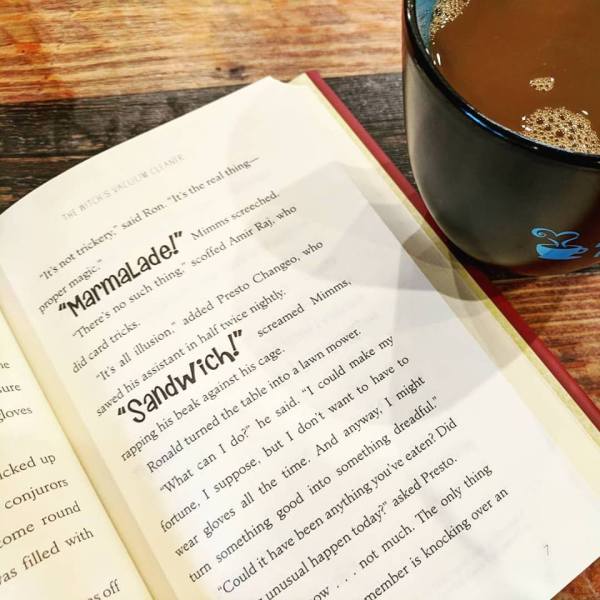 he
sure
gloves
icked up
conjurors
ome round
as filled with
as off
THE WITCH'S VACUUM CLEANER
"It's not trickery," said Ron. "It's the real thing—
proper magic."
"MarmaLade!" Mimms screeched.
"There's no such thing," scoffed Amir Raj, who
did card tricks.
"It's all illusion," added Presto Changeo, who
sawed his assistant in half twice nightly.
"SandWich!" screamed Mimms,
rapping his beak against his cage.
Ronald turned the table into a lawn mower.
"What can I do?" he said. "I could make my
fortune, I suppose, but I don't want to have to
wear gloves all the time. And anyway, I might
turn something good into something dreadful."
"Could it have been anything you've eaten? Did
unusual happen today?" asked Presto.
ow . . . not much. The only thing
member is knocking over an
7